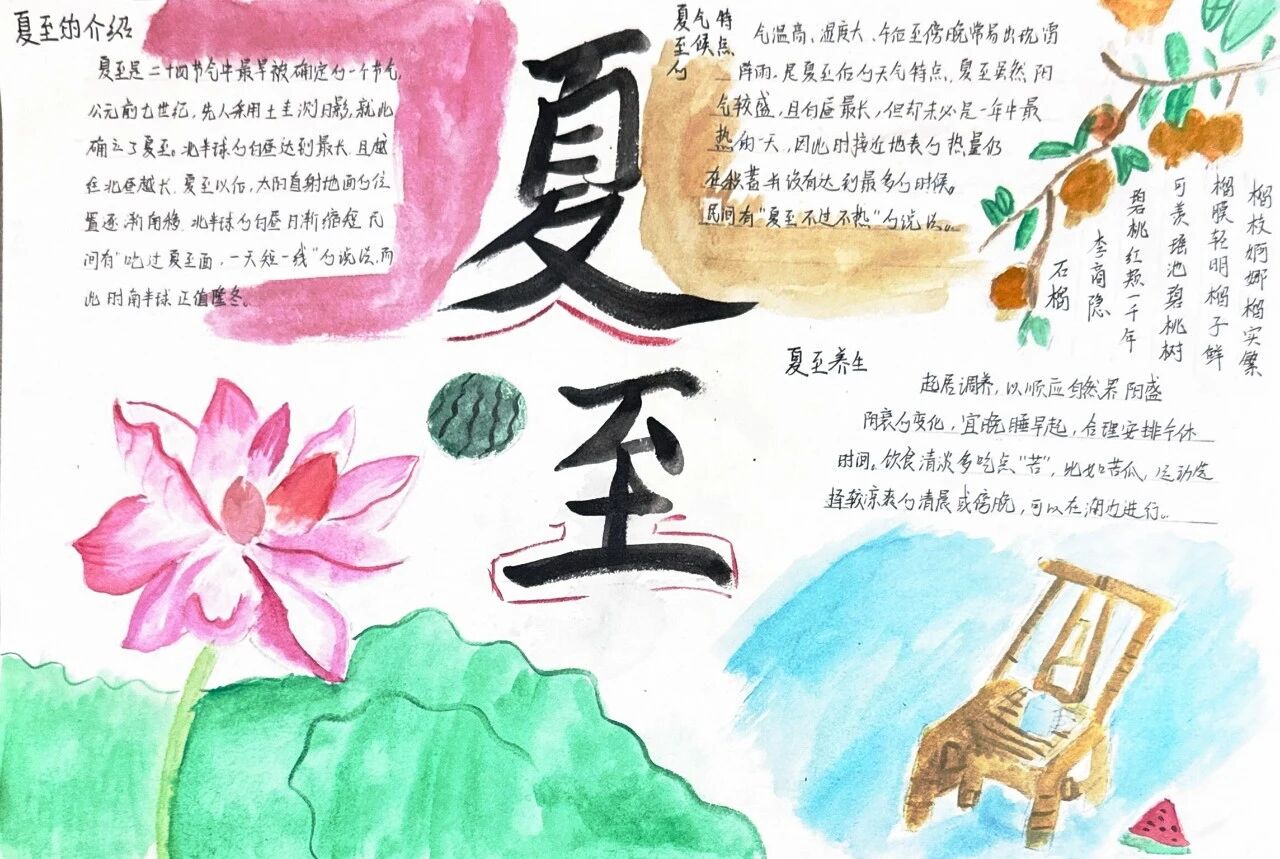 夏至的介绍
夏至是二十四节气中最早被确定的一个节气,
公元前七世纪,先人采用土圭测日影,就此
确立了夏至。北半球的白昼达到最长,且越
往北昼越长.夏至以后,太阳直射地面的位
置逐渐南移,北半球的白昼日渐缩短.民
间有"吃过夏至面,一天短一线"的说法.而
此时南半球正值隆冬。
夏至
夏至的
气候
特点
气温高、湿度大、午后至傍晚常易出现雷
阵雨,是夏至后的天气特点,夏至虽然阳
气较盛,且白昼最长,但却未必是一年中最
热的一天,因此时接近地表的热量仍
在积蓄并没有达到最多的时候。
民间有"夏至不过不热"的说法。
榴枝婀娜榴实繁
榴膜轻明榴子鲜
可羡瑶池碧桃树
碧桃红颊一千年
李商隐
石榴
夏至养生
起居调养,以顺应自然界阳盛
阴衰的变化,宜晚睡早起,合理安排午休
时间。饮食清淡多吃点"苦",比如苦瓜,运动选
择较凉爽的清晨或傍晚,可以在湖边进行。